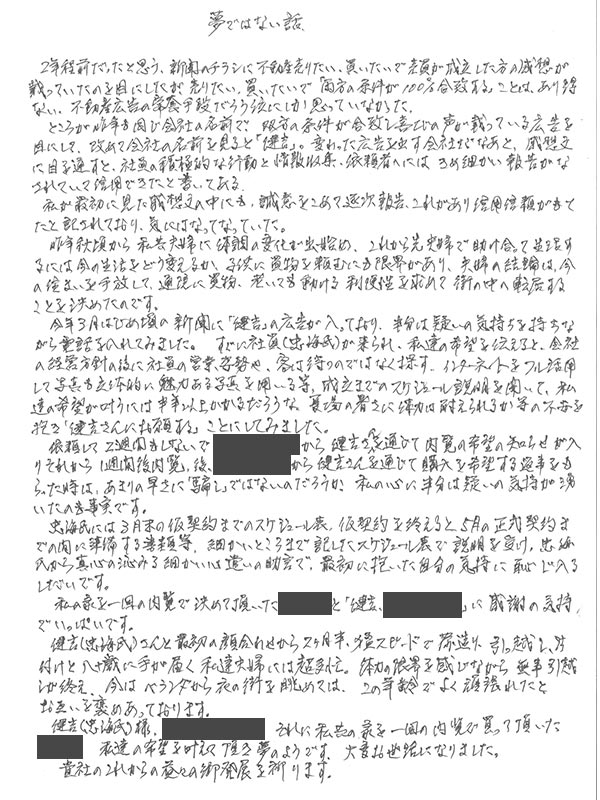 夢ではない話
2年程前だったと思う、新聞のチラシに不動産売りたい、買いたいで売買が成立した方の感想が
載っていたのを目にしたが売りたい、買いたいで「両方の条件が100%合致することは、あり得
ない。不動産広告の常套手段だろう位にしか思っていなかった。
ところが昨年も同じ会社の名前で、双方の条件が合致し喜びの声が載っている広告を
目にして、改めて会社の名前を見ると「健吉」。変わった広告を出す会社だなあと、感想文
に目を通すと、社員の積極的な行動と情報収集、依頼者へにはきめ細かい報告がな
されていて信用できたと書いてある。
私が最初に見た感想文の中にも、誠意をこめて逐次報告、これがあり信用信頼ができ
たと記されており、気にはなってなっていた。
昨年秋頃から私共夫婦に体調の変化が出始め、これから先夫婦で助け合って生活す
るには今の生活をどう変えるか、子供に買物を頼むにも限界があり、夫婦の結論は、今
の住まいを手放して、通院に買物、老いても動ける利便性を求めて街の中へ転居する
ことを決めたのです。
今年3月はじめ頃の新聞に「健吉」の広告が入っており、半分は疑いの気持ちを持ちな
がら電話を入れてみました。すぐに社員(忠海氏)が来られ、私達の希望を伝えると、会社
の経営方針の後に社員の営業姿勢や、客は待つのではなく探す、インターネットをフル活用
して写真も立体的に魅力ある写真を用いる等、成立までのスケジュール説明を聞いて、私
達の希望が叶うには半年以上かかるだろうな、夏場の暑さに体力は耐えられるか等の不安を
抱き「健吉さんにお願する」ことにしてみました。
依頼して2週間もしないで から健吉さんを通じて内覧の希望の知らせが入
りそれから1週間後内覧、後、 から健吉さんを通じて購入を希望する返事をも
らった時は、あまりの早さに「騙し」ではないのだろうか、私の心に半分は疑いの気持が湧
いたのも事実です。
忠海氏には3月末の仮契約までのスケジュール表、仮契約を終えると5月の正式契約ま
での間に準備する書類等、細かいところまで記したスケジュール表で説明を受け、忠海
氏から真心の沁みる細かい心遣いの助言で、最初に抱いた自分の気持に恥じ入る
しだいです。
私の家を一回の内覧で決めて頂いた と「健吉、 」に感謝の気持
でいっぱいです。
健吉(忠海氏)さんと最初の顔合わせから2ヶ月半、猛スピードで荷造り、引っ越し、片
付けと八十歳に手が届く私達夫婦には超多忙。体力の限界を感じながら無事引越
しが終え、今はベランダから夜の街を眺めては、この年齢でよく頑張れたと
お互いを褒めあっております。
健吉(忠海氏)様、 それに私共の家を一回の内覧で買って頂いた
 私達の希望を叶えて頂き夢のようです。大変お世話になりました。
貴社のこれからの益々の御発展を祈ります。